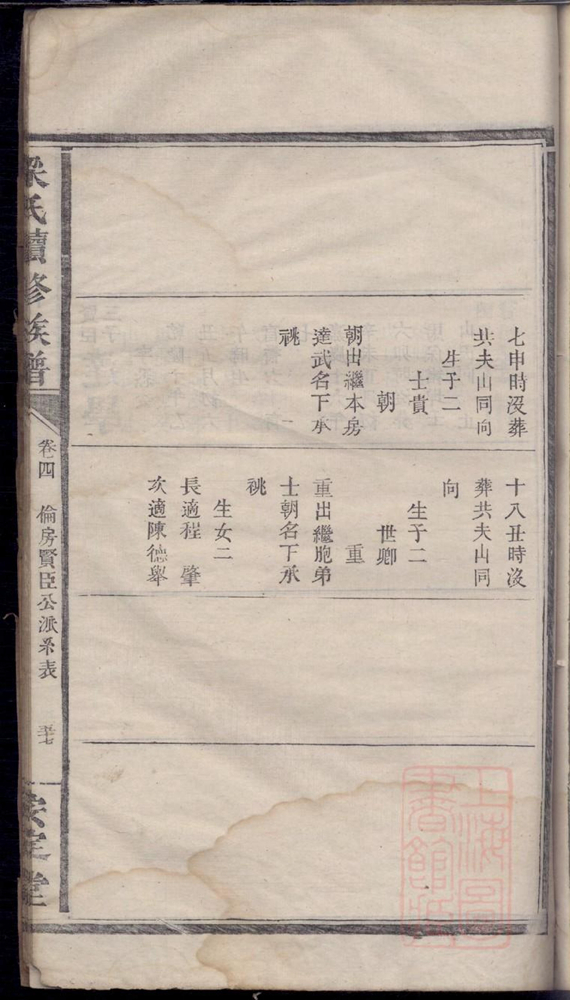 七申時没葬
共夫山同向
生子二
士貴
朝
朝出繼本房
達武名下承
祧
十八丑時没
葬共夫山同
向
生子二
世卿
重
重出繼胞弟
士朝名下承
祧
生女二
長適程肇
次適陳德舉
梁氏續修族譜
卷四
倫房賢臣公派系表
安定堂
上海圖書館藏